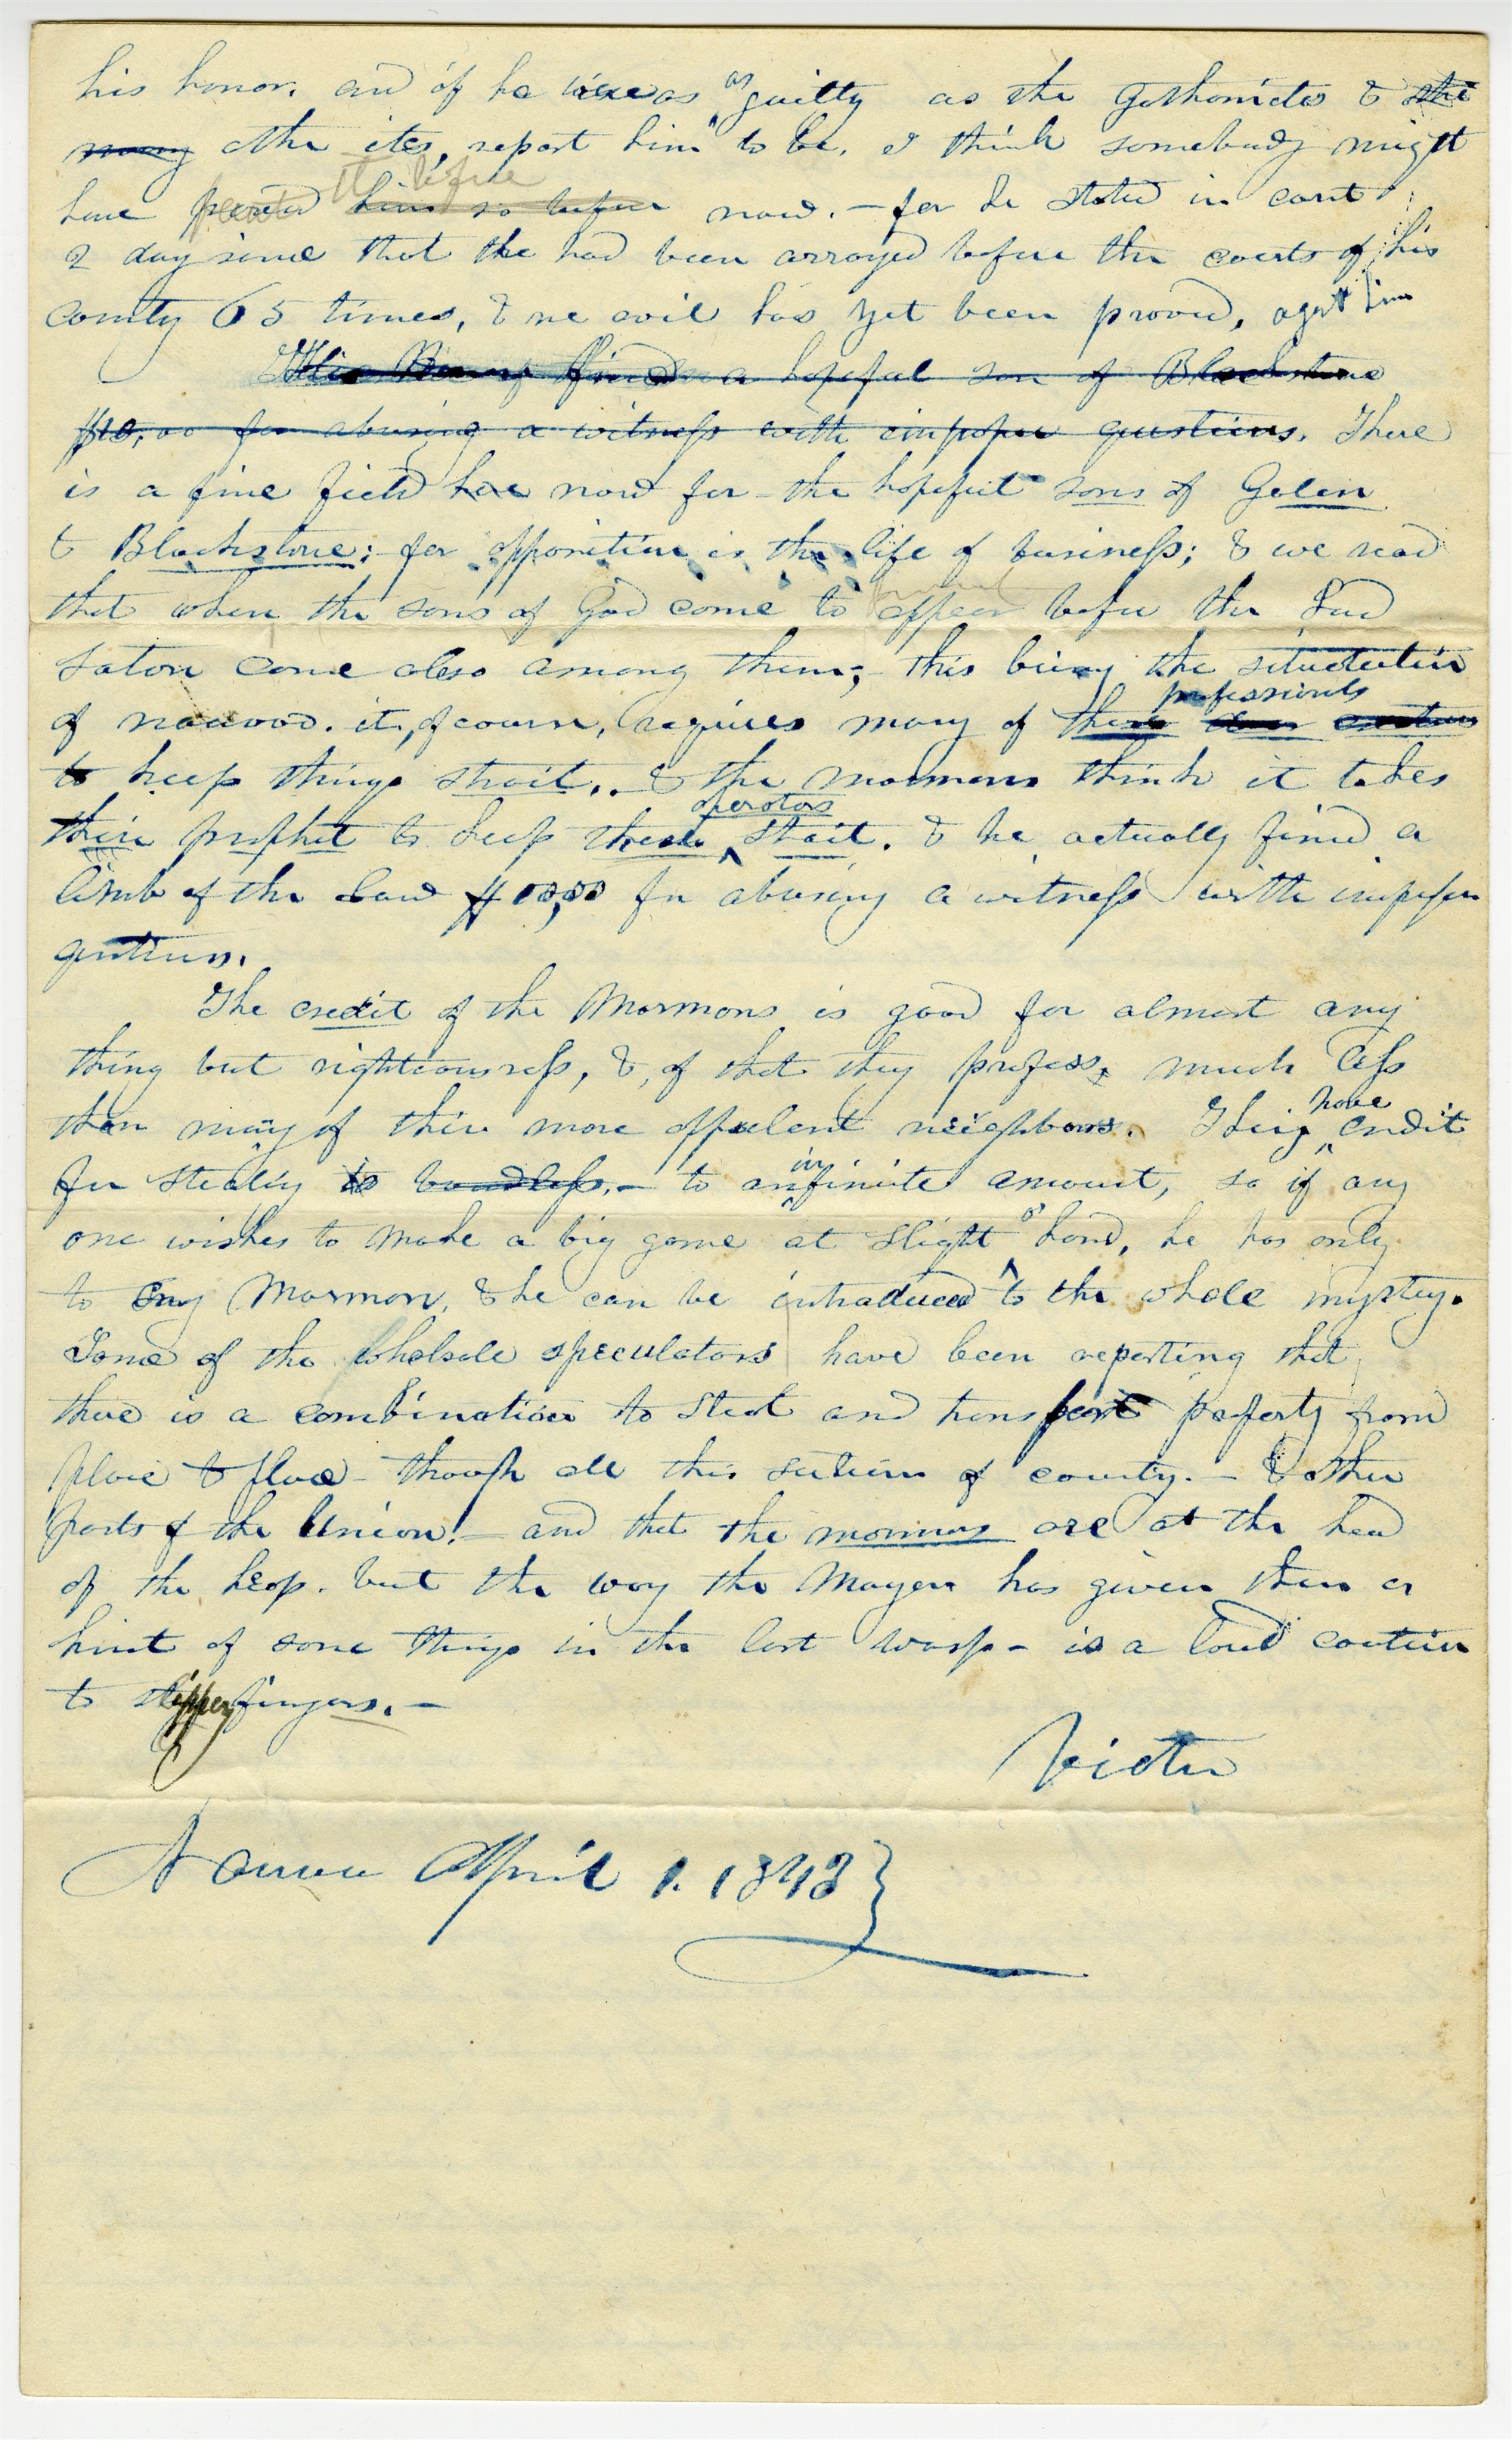 his honor. and if he were as guilty as the Gothamites & the
many other ites, report him to be, I think somebody might
have proved him so before now. — for he stated in court
2 day since that the had been arrayed before the courts of his
county 65 times, & no evil has yet been proved, agnst him
fined a hopeful son of Blackstone
$10,00 for abusing a witness with improper questions. There
is a fine field here now for the hopeful sons of Galen
& Blackstone; for opposition is the life of business; & we read
that when the sons of God come to appear before the Lord
Saton come also among them; this being the situation
of nauvoo. it, of course, requires many of these professionals
to keep things strait. & the mormons think it takes
their prophet to keep these operators strait. & he actually fined a
limb of the Law $10,00 for abusing a witness with improper
questions.
The credit of the Mormons is good for almost any
thing but righteousness, & of that they profess, much less
than many of their more oppulent neighbors. They have credit
for stealing to boundless.— to an infinite amount, so if any
one wishes to make a big game at slight of hand, he has only
to say Mormon, & he can be introduced to the whole mystery.
Some of the wholesale speculators have been reporting that
there is a combination to steal and transport property from
place to place through all this section of country.— & other
parts of the Union!— and that the mormons are at the head
of the heap. but the way the Mayor has given them a
hint of some things in the last wasp — is a loud caution
to slippery fingers.—
Victor
Nauvoo April 1. 1843